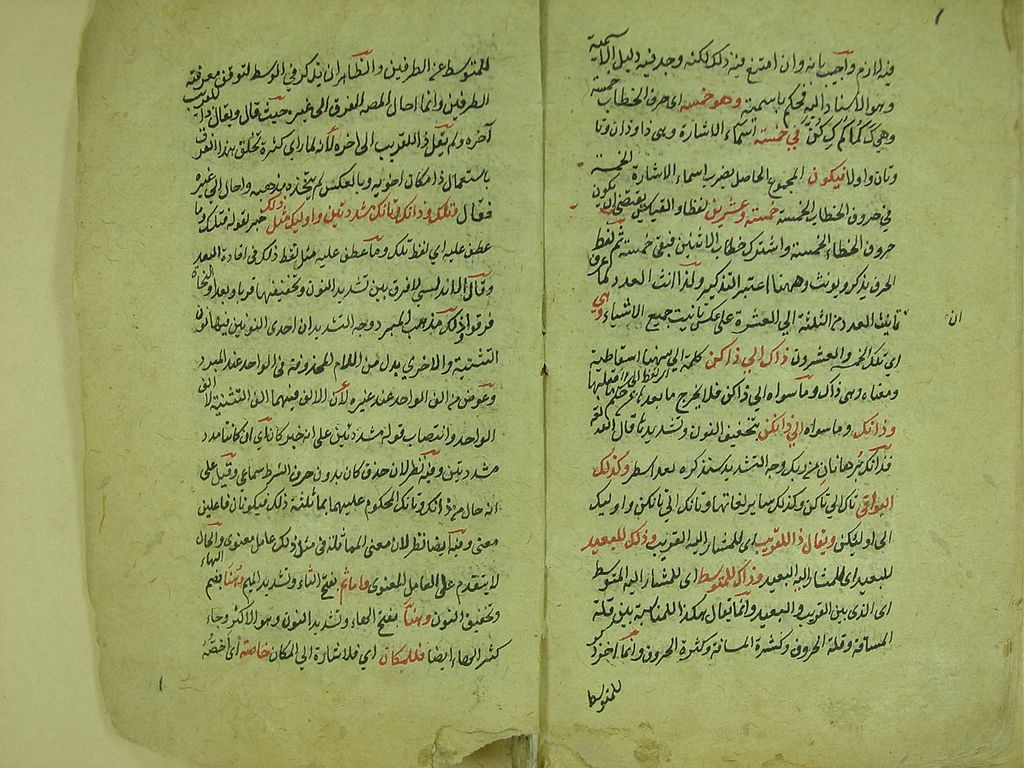 فيه لازم واجيب بانه وان امتنع فيه ذلك لكنه وجد فيه دليل الاسمية
وهو الاسناد اليه فحكم باسميته وهو خمسة اى حرف الخطاب خمسة
وهى كَ كُما كُم كِ كُنَّ فى خمسة اسماء الاشارة وهى ذا وذان وتا
وتان واولا فيكون المجموع الحاصل بضرب اسماء الاشارة الخمسة
فى حروف الخطاب الخمسة خمسة وعشرين لفظا والقياس يقتضى ان يكون
حروف الخطاب الخمسة واشترك خطاب الاثنين فبقى خمسة ثم لفظ
الحرف يذكر ويونث وههنا اعتبر التذكير ولذا انث العدد كما عرف
تانيث العدد من الثلثة الى العشرة على عكس تانيث جميع الاشياء وهى
ان
اى تلك الخمسة والعشرون ذاك الى ذاكن كلمة الى ههنا اسقاطية
ومعناه وهى ذاك وما سواه الى ذاكن فلا يخرج ما بعد
وذانك وما سواه الى ذانكن بتخفيف النون وتشديدها قال الله تعالى
فذانك برهانان من ربك ووجه التشديد سنذكره بعد اسطر وكذلك
البواقى تاك الى تاكن وكذلك سايرلغاتها وتانك الى تانكن واوليك
الى اوليكن ويقال ذا للقريب اى للمشار اليه القريب وذلك للبعيد
للبعيد اى للمشار اليه البعيد وذاك للمتوسط اى للمشار اليه المتوسط
اى الذى بين القريب والبعيد وانما يقال هكذا للمناسبة بين قلة
المسافة وقلة الحروف وكثرة المسافة وكثرة الحروف وانما اخر ذكر
للمتوسط
للمتوسط عن الطرفين والظاهر ان يذكر فى الوسط لتوقف معرفته
الطرفين وانما احال المصه الفرق الى غيره حيث قال ويقال ذا للقريب
آخره ولم يقل ذا للقريب الى اخره لانه لما راى كثرة تخلف هذا الفرق
باستعمال ذا مكان اخويه وبالعكس لم يتخذه مذهبه واحال الى غيره
فقال وتلك وذانك وتانك مشددتين واوليك مثل ذلك خبر لقوله فتلك وما
عطف عليه اى لفظ تلك وما عطف عليه مثل لفظ ذلك فى افادة البعد
وقال الاندلسى لا فرق بين تشديد النون وتخفيفها قربا وبعدا والنحاة
فرقوا وذلك مذهب المبرد ووجه التشديد ان احدى النونين فيها نون
التثنية والاخرى بدل من اللام المحذوفة فى الواحد عند المبرد
وعوض من الف الواحد عند غيره لان الالف فيهما الف التثنية لا الف
الواحد وانتصاب قوله مشددتين على انه خبر كان اى ان كانتا مشدد
مشددتين وفيه نظر لان حذف كان بدون حرف الشرط سماعى وقيل على
انه حال من ذانك وتانك المحكوم عليهما بمماثلة ذلك فيكونان فاعلين
معنى وفيه ايضا نظر لان معنى المماثلة فى مثل ذلك عامل معنوى والحال
لا يتقدم على العامل المعنوى واما ثم بفتح الثاء وتشديد الميم وهنا بضم الهاء
وتخفيف النون وهنا بفتح الهاء وتشديد النون وهو الاكثر وجاء
كسر الهاء ايضا فللمكان اى فللاشارة الى المكان خاصة اى اخصه